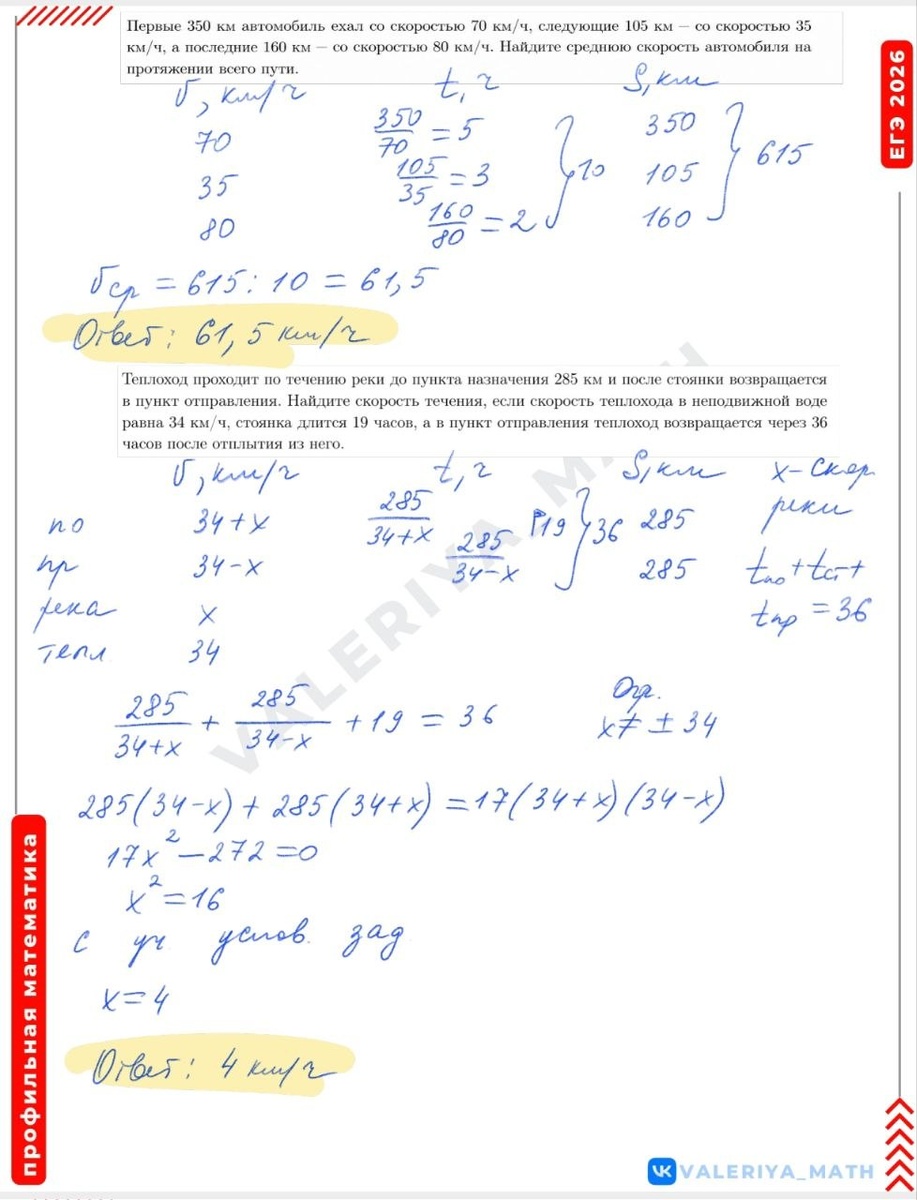 Первые 350 км автомобиль ехал со скоростью 70 км/ч, следующие 105 км — со скоростью 35
км/ч, а последние 160 км — со скоростью 80 км/ч. Найдите среднюю скорость автомобиля на
протяжении всего пути.
ЕГЭ 2026
v, км/ч t, ч S, км
70 350/70 = 5 350
35 105/35 = 3 105
80 160/80 = 2 160
10 615
vср = 615 : 10 = 61,5
Ответ: 61,5 км/ч
Теплоход проходит по течению реки до пункта назначения 285 км и после стоянки возвращается
в пункт отправления. Найдите скорость течения, если скорость теплохода в неподвижной воде
равна 34 км/ч, стоянка длится 19 часов, а в пункт отправления теплоход возвращается через 36
часов после отплытия из него.
v, км/ч t, ч S, км x – скор.
реки
по 34+x 285/(34+x) 19 36 285
пр 34-x 285/(34-x) 285 tпо + tст +
река x tпр = 36
тепл 34
285/(34+x) + 285/(34-x) + 19 = 36 Огр.
x ≠ ± 34
285(34-x) + 285(34+x) = 17(34+x)(34-x)
17x² - 272 = 0
x² = 16
с уч услов. зад
x = 4
Ответ: 4 км/ч
профильная математика
VALERIYA_MATH
VALERIYA_MATH